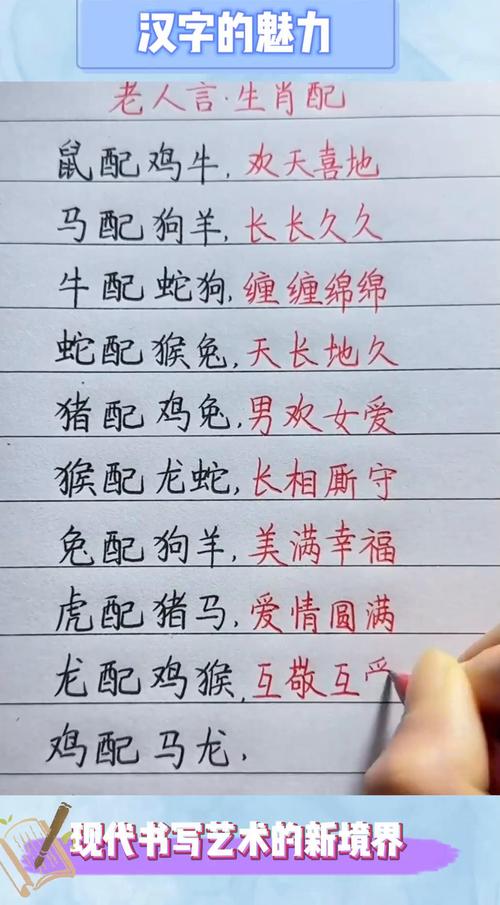 汉字的魅力
老人言·生肖配
鼠配鸡牛,欢天喜地
马配狗羊,长长久久
牛配蛇狗,缠缠绵绵
蛇配猴兔,天长地久
猪配鸡兔,男欢女爱
猴配龙蛇,长相厮守
兔配狗羊,美满幸福
虎配猪马,爱情圆满
龙配鸡猴,互敬互
鸡配马龙,
现代书写艺术的新境界